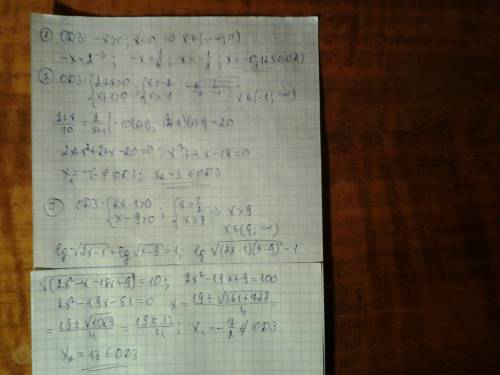 ① ОДЗ: -x>0; x<0 ⇒ x∈(-∞; 0)
-x=2⁻³; -x=1/8; x=-1/8; x=-0,125∈ОДЗ
② ОДЗ: {2+x>0 {x>-2
{x+1>0; {x>-1 x∈(-1; ∞)
(2+x)/10 = 2/(x+1) |·10(x+1); (2+x)(x+1)=20
2x+x²+2+x-20=0; x²+3x-18=0
x₁=-6∉ОДЗ; x₂=3∈ОДЗ
ОДЗ: {2x-1>0 {x>1/2
{x-9>0; {x>9 ⇒ x>9
x∈(9; ∞)
lg√(2x-1)+lg√(x-9)=1; lg√((2x-1)(x-9))=1
√(2x²-x-18x+9)=10; 2x²-19x+9=100
2x²-19x-91=0 x=(19±√(361+728))/4=
=(19±√1089)/4=(19±33)/4; x₁=-7/2∉ОДЗ
x₂=13∈ОДЗ